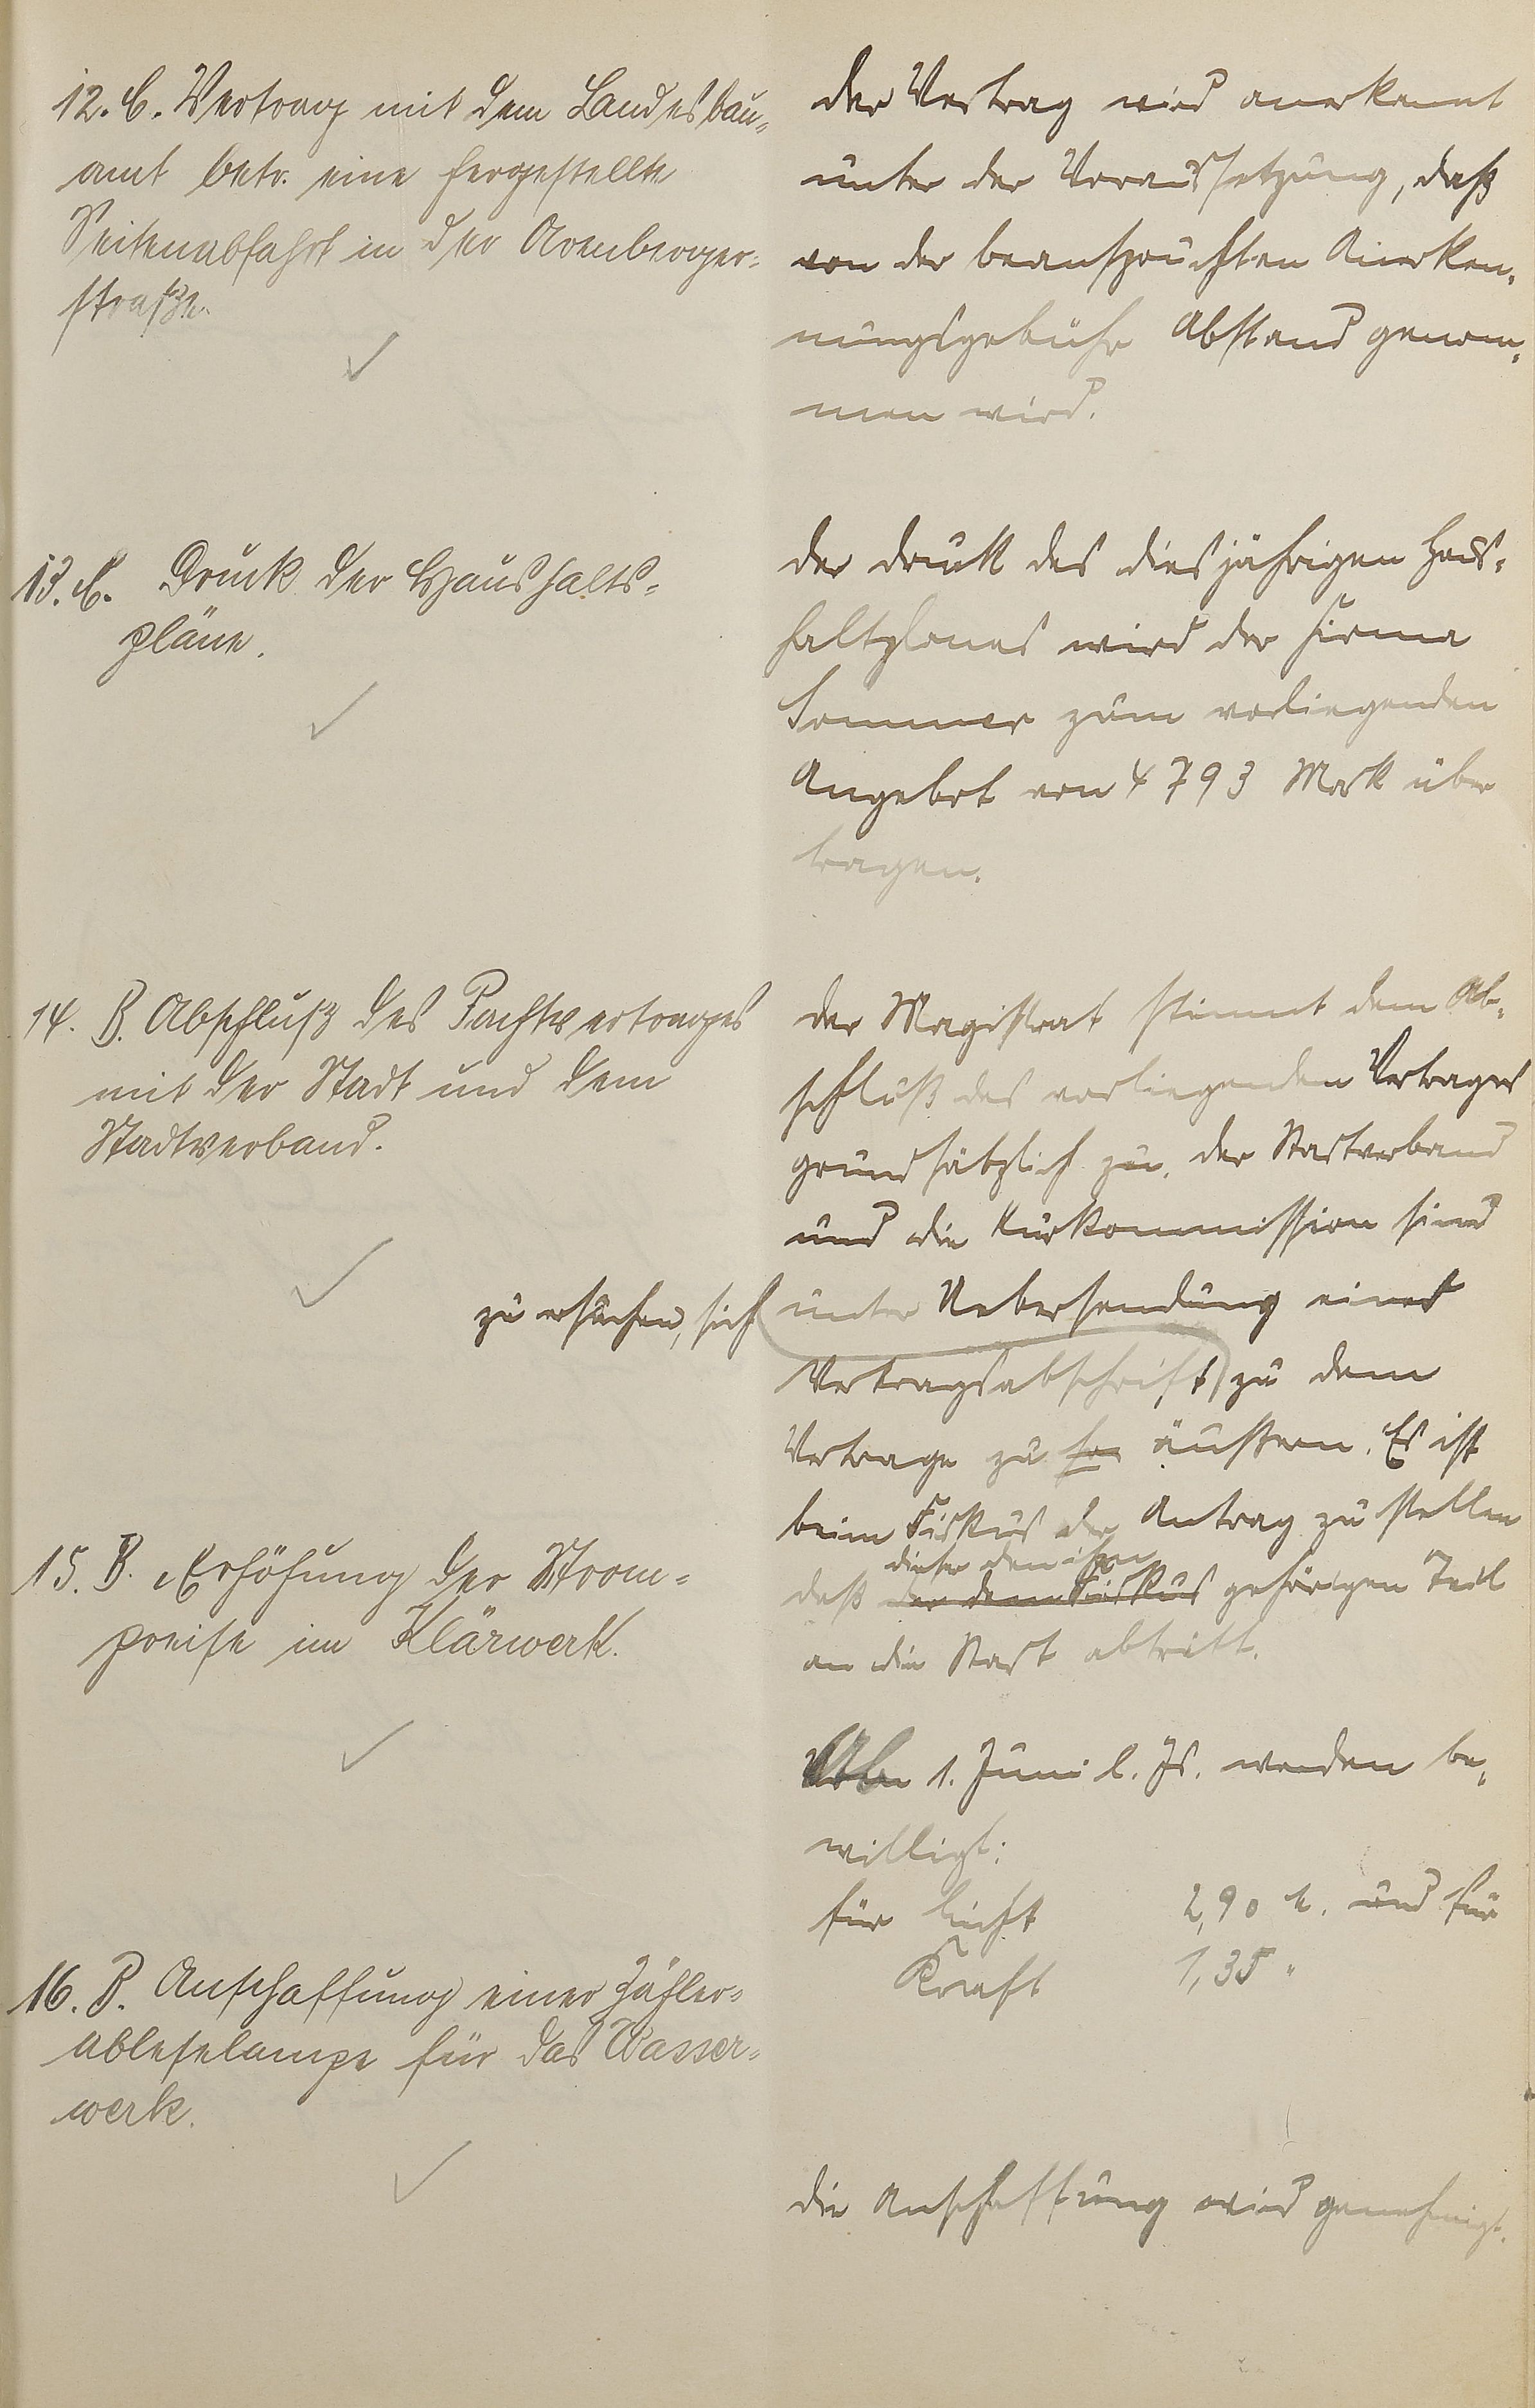 12. C. Vertrag mit dem Landesbau-
amt betr. eine hergestellte
Seitenabfahrt in der Arenberger-
straße.
der Vertrag wird anerkannt
unter der Voraussetzung, daß
von der beanspruchten Anerken-
nungsgebühr Abstand genom-
men wird.
13. C. Druck der Haushalts-
pläne.
der Druck des diesjährigen Haus-
haltplanes wird der Firma
Sommer zum vorliegenden
Angebot von 4793 Mark über
tragen.
14. B. Abschluß des Pachtvertrages
mit der Stadt und dem
Stadtverband.
der Magistrat stimmt dem Ab-
schluß des vorliegenden Vertrages
grundsätzlich zu. der Stadtverband
und die Kurkommission sind
zu ersuchen, sich unter Uebersendung einer
Vertragsabschrift zu dem
Vertrage zu äußern. Es ist
beim Fiskus der Antrag zu stellen
dieser den ihm
daß der dem Fiskus gehörigen Teil
an die Stadt abtritt.
15. B. Erhöhung der Strom-
preise im Klärwerk.
Ab 1. Juni l. Js. werden be-
willigt:
für Licht 2,90 M. und für
Kraft 1,35 "
16. B. Anschaffung einer Zähler-
ableselampe für das Wasser-
werk.
die Anschaffung wird genehmigt.